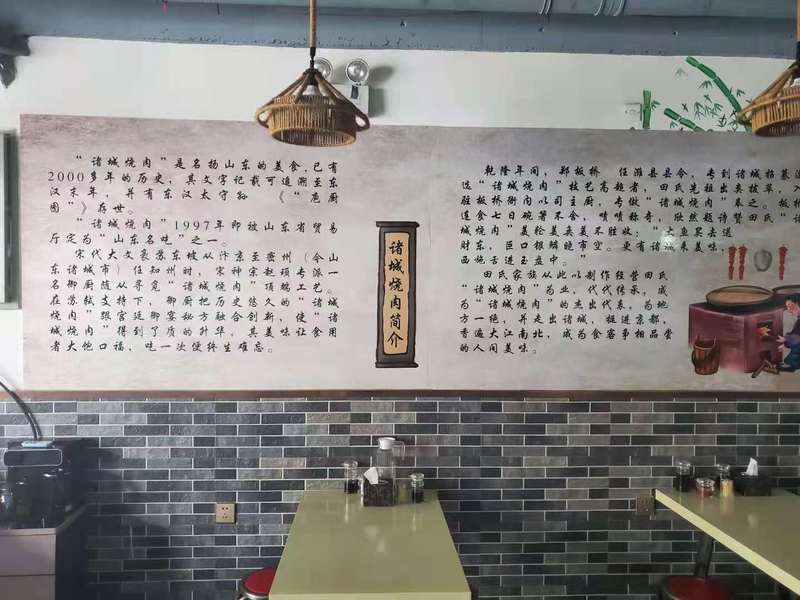 "诸城烧肉"是名扬山东的美食,已有
2000多年的历史,其文字记载可追溯至东
汉末年,并有东汉太守孙 《"庖厨
图"》存世。
"诸城烧肉"1997年即被山东省贸易
厅定为"山东名吃"之一。
宋代大文豪苏东坡从汴京至密州(今山
东诸城市)任知州时,宋神宗赵顼专派一
名御厨随从寻觅"诸城烧肉"顶端工艺。
在苏轼支持下,御厨把历史悠久的"诸城
烧肉"跟宫廷御宴秘方融合创新,使"诸
城烧肉"得到了质的升华,其美味让食用
者大饱口福,吃一次便终生难忘。
诸城烧肉简介
乾隆年间,郑板桥 任潍县县令,专到诸城招募
选"诸城烧肉"技艺高超者,田氏先祖出类拔萃,入
驻板桥衙内以司主厨,专做"诸城烧肉"奉之。板桥
连食七日碗箸不舍,啧啧称奇,欣然题诗赞田氏"诸
城烧肉"美轮美奂美不胜收:"大鱼买去送
财东,巨口银鳞晚市空。更有诸城来美味,
西施舌进玉盘中。"
田氏家族从此以制作经营田氏
"诸城烧肉"为业,代代传承,成
为"诸城烧肉"的杰出代表,为地
方一绝,并走出诸城,挺进京都,
香遍大江南北,成为食客争相品尝
的人间美味。